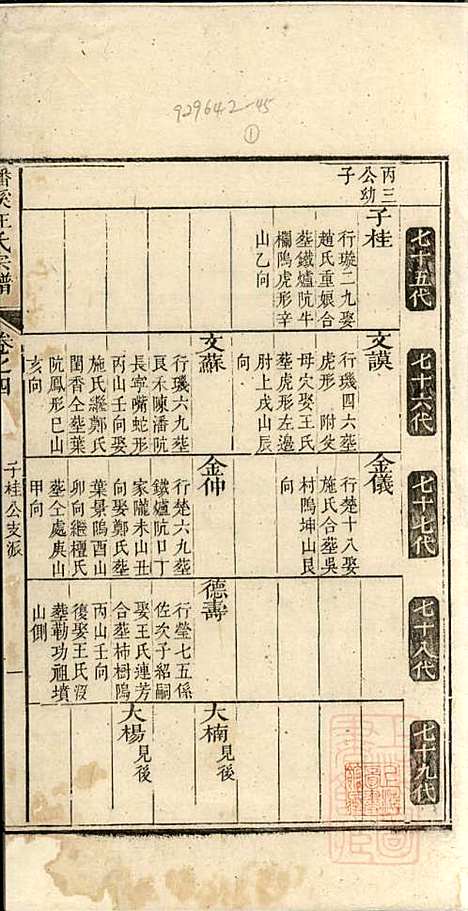 929642-45
①
七十五代
丙三
公幼
子
子桂
行璇二九娶
趙氏重娘合
塟鐵爐阬牛
欄隝虎形辛
山乙向
七十六代
文謨
行璣四六塟
虎形 附父
母穴娶王氏
塟虎形左邉
肘上戌山辰
向
文蘇
行璣六九塟
艮禾陳潘阬
長寧嘴蛇形
丙山壬向娶
施氏繼鄭氏
閏香仝塟葉
阬鳳形巳山
亥向
七十七代
金儀
行楚十八娶
施氏合塟吳
村隝坤山艮
向
金仲
行楚六九塟
鐵爐阬口丁
家隴未山丑
向娶鄭氏塟
葉景隝酉山
卯向繼櫃氏
塟仝處庚山
甲向
七十八代
德壽
行瑩七五係
佐次子紹嗣
娶王氏連芳
合塟柿樹隝
丙山壬向
復娶王氏沒
塟勒功祖墳
山側
七十九代
大楠見後
大楊見後
潘溪汪氏宗譜
卷之四
子桂公支派
一